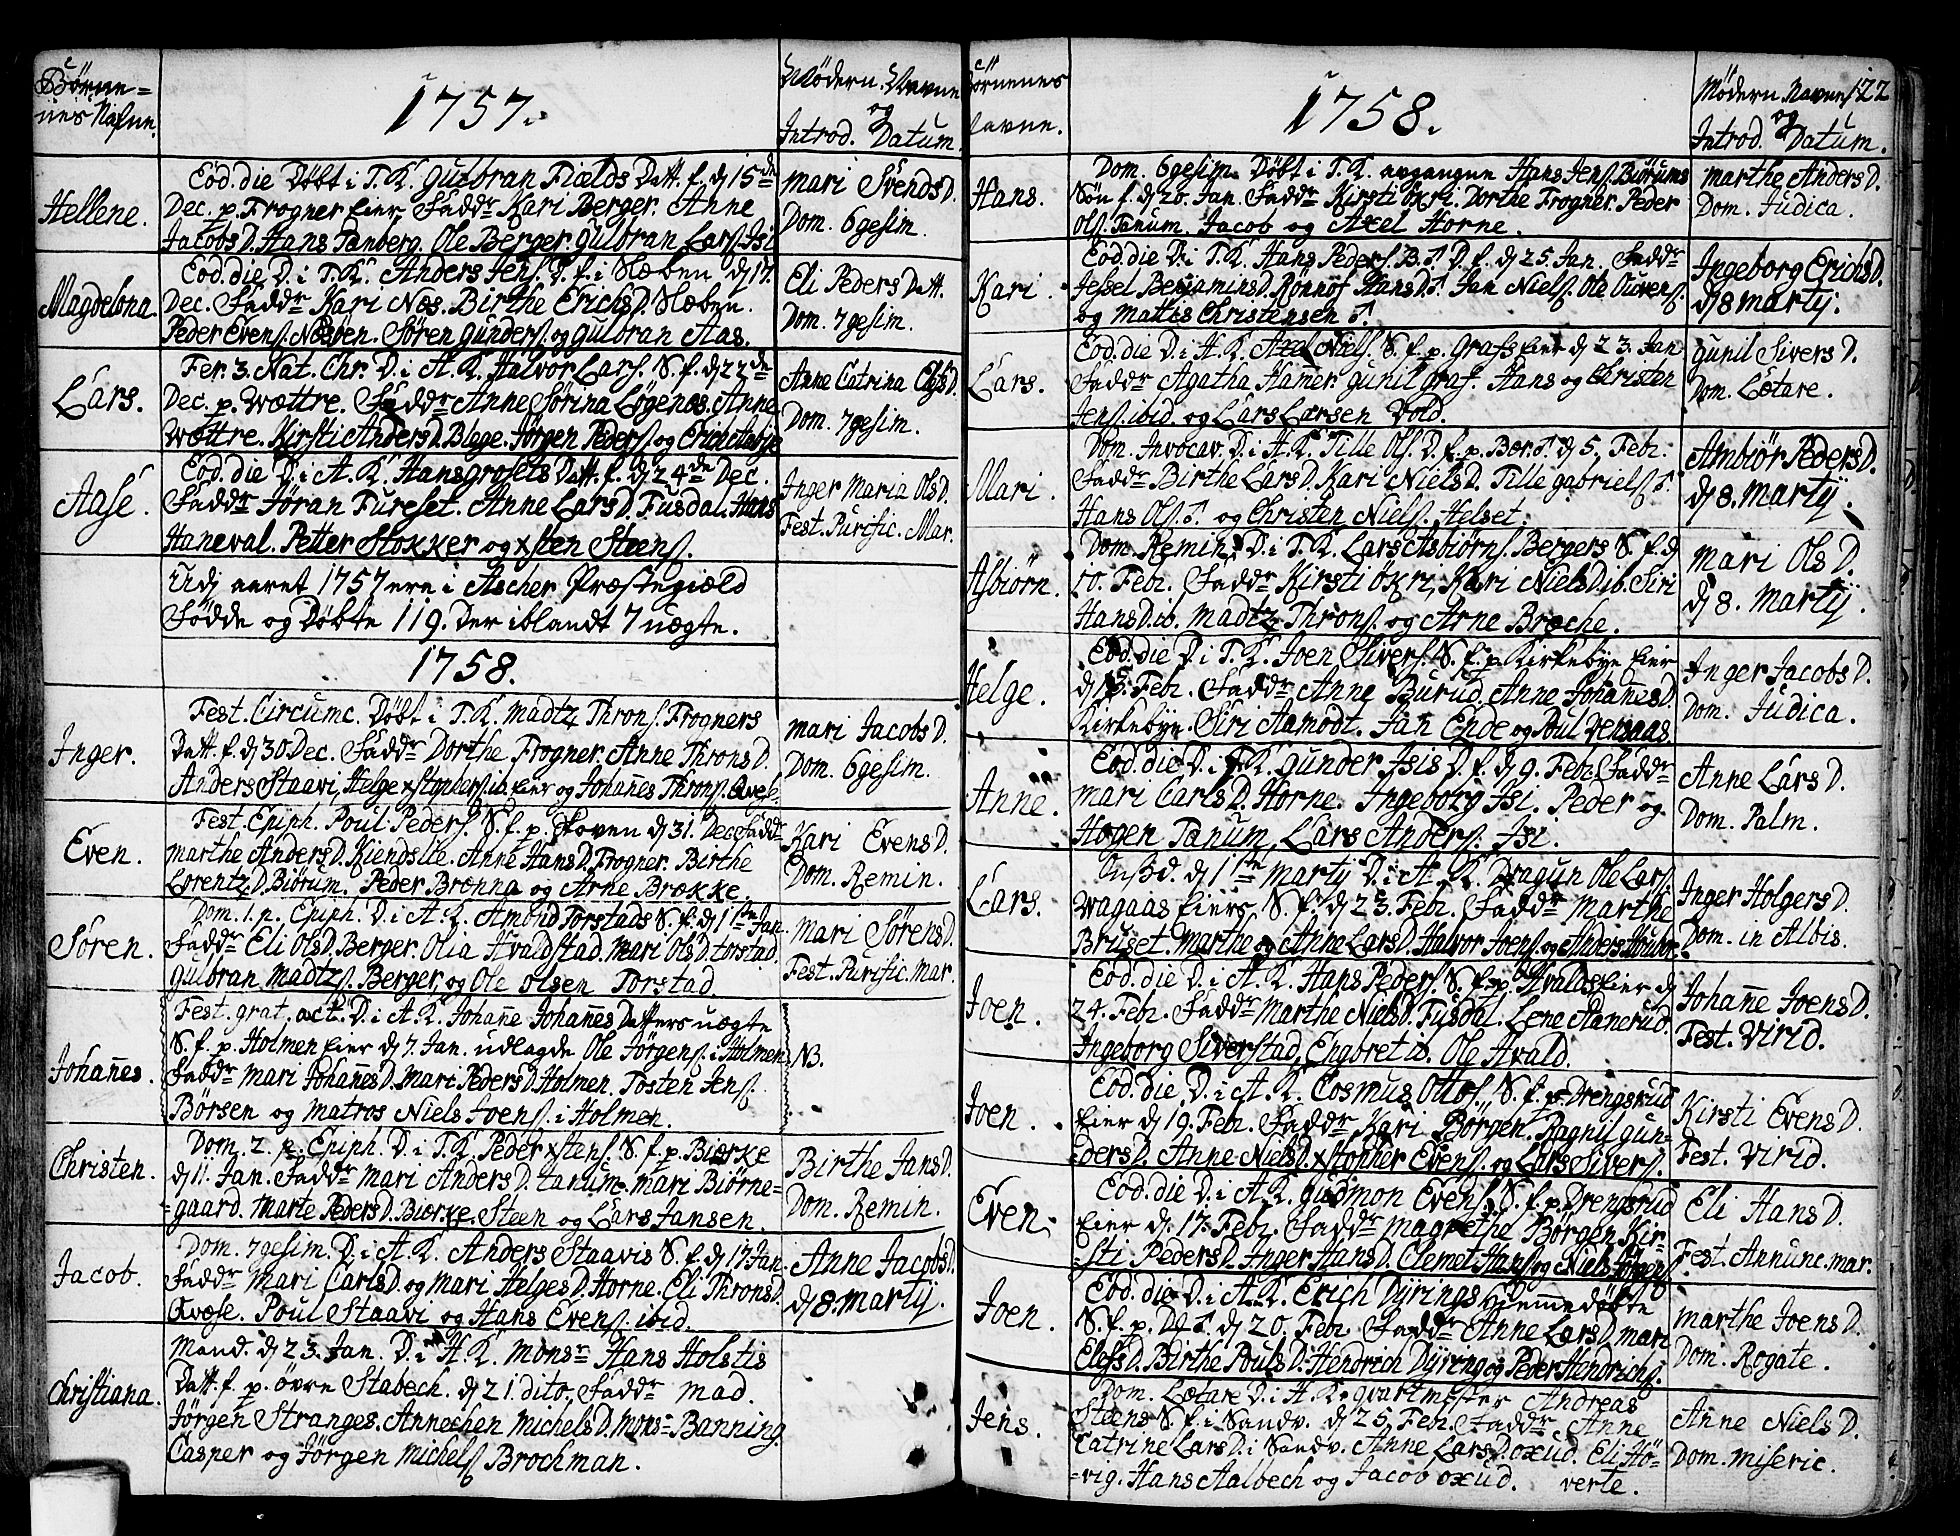 Børne=
nes Nafne.
1757.
Mødern. Navne
og
Introd. Datum.
Hellene.
Eod. die Døbt i T. K. Gulbran Fields Datt. f. dj 15de
Dec. p. Frogner Eier, Faddr Kari Berger. Anne
Jacobs D. Hans Tanberg. Ole Berger. Gulbran Lars. Isi
Mari Svends D.
Dom. 6gesim.
Magdelona.
Eod. die D. i T. K. Anders Jens. D. f. i Næben dj 17.
Dec. Faddr Kari Næs. Birthe Erichs D. Næben.
Peder Evens. Næsøen. Søren Gunders. og Gulbran Aas.
Eli Peders Datt.
Dom. 7gesim.
Lars.
Fer. 3. Nat. Chr. D. i A. K. Halvor Lars. S. f. dj 22de
Dec. p. Wættre. Faddr Anne Sørina Løgenæs. Anne
Wættre. Kirsti Anders D. Blege. Jørgen Peders. og
Anne Catrina Elis D.
Dom. 7gesim.
Aase.
Eod. die D. i A. K. Hans Grosets Datt. f. dj 24de Dec.
Faddr Jøran Fureset. Anne Lars D. Fusdal. Hans
Haneval. Petter Stokker og xsten Steens.
Inger Maria Ols D.
Fest. Purific. Mar.
Udj aaret 1757 ere i Ascher Præstegiæld
Fødde og Døbte 119. Der iblandt 7 uægte.
1758.
Inger.
Fest. Circumc. Døbt i T. K. Madtz Throns. Frogners
Datt. f. dj 30 Dec. Faddr Dorthe Frogner. Anne Throns D.
Anders Staavi, Helge xstophers. ib. Eier og Johanes Throns. Qvese.
Mari Jacobs D.
Dom. 6gesim.
Even.
Fest. Epiph. Poul Peders. S. f. p. Skoven dj 31. Dec. Faddr
Marthe Anders D. Kiendslie. Anne Hans D. Frogner. Birthe
Lorentz D. Biørum. Peder Brenna og Arne Brække.
Kari Evens D.
Dom. Remin.
Søren.
Dom. 1. p. Epiph. D. i A. K. Amund Torstads S. f. dj 1ste Jan.
Faddr Eli Ols D. Berger. Olia Hvaldstad. Mari Ols D. Torstad.
Gulbran Madtzs. Berger og Ole Olsen Torstad.
Mari Sørens D.
Fest. Purific. Mar.
Johanes.
Fest. grat. act. D. i A. K. Johane Johanes Datters uægte
S. f. p. Holmen Eier dj 7. Jan. udlagde Ole Jørgens. i Holmen
Faddr Mari Johanes D. Mari Peders D. Holmen. Tosten Jens.
Børsen og Matros Niels Joens. i Holmen.
NB.
Christen.
Dom. 2. p. Epiph. D. i T. K. Peder xstens. S. f. p. Bierke
dj 11. Jan. Faddr Mari Anders D. Tanum. Mari Biørne=
=gaard. Marte Peders D. Bierke. Steen og Lars Jansen.
Birthe Jans D.
Dom. Remin.
Jacob.
Dom. 7gesim. D. i A. K. Anders Staavis S. f. dj 17 Jan.
Faddr Mari Carls D. og Mari Helges D. Horne. Eli Throns D.
Qvæse. Poul Staavi og Hans Evens. ibid.
Anne Jacobs D.
dj 8. Martij.
Christiana.
Mand. dj 23. Jan. D. i H. K. Monsr Hans Holstis
Datt. f. p. øvre Stabech. dj 21. dito. Faddr Mad.
Jørgen Stranges. Annechen Michels D. Monsr Banning.
Casper og Jørgen Michels. Brochman.
Børnenes
Navne.
1758.
Mødern. Navne 122
og
Introd. Datum.
Hans.
Dom. 6gesim. Døbt i T. K. Hans Jens. Biørums
Søn f. dj 20. Jan. Faddr Kirsti Økri. Dorthe Frogner. Peder
Ols. Tanum. Jacob og Axel Horne.
Marthe Anders D.
Dom. Judica.
Kari.
Eod. die D. i T. K. Hans Peders. B. ♂ D. f. dj 25. Jan. Faddr
Jessel Benjamins D. Rønnøf Hans D. ♂. Jan Niels. Ole Ouvens.
og Mattis Christensen ♂.
Ingeborg Erichs D.
dj 8 Martij.
Lars.
Eod. die D. i A. K. Axel Niels. S. f. p. Grafs Eier dj 23. Jan.
Faddr Agatha Hamer. Gunil Graf. Hans og Christen
Jens. ibid. og Lars Larsen Vold.
Gunil Sivers D.
Dom. Lætare.
Mari.
Dom. Invocav. D. i A. K. Tille Ols. D. f. p. Ber. ♂ dj 5. Febr.
Faddr Birthe Lars D. Kari Niels D. Tille Gabriels. ♂.
Hans Ols. ♂. og Christen Niels. Helset.
Ambiør Peders D.
dj 8. Martij.
Asbiørn.
Dom. Remin. D. i T. K. Lars Asbiørns. Bergers S. f. dj
10. Febr. Faddr Kirsti Økri, Kari Niels D. ib. Siri
Hans D. ib. Madtz Throns. og Arne Breche.
Mari Ols D.
dj 8. Martij.
Helge.
Eod. die D. i T. K. Joen Sivers. S. f. p. Kirkebye Eier
dj 15. Febr. Faddr Anne Burud. Anne Johanes D.
Kirkebye. Siri Aamodt. Jan Ende og Poul Vensaas.
Inger Jacobs D.
Dom. Judica.
Anne.
Eod. die D. i T. K. Gunder Isis D. f. dj 9. Febr. Faddr
Mari Carls D. Horne. Ingeborg Isi. Peder og
Hogen Tanum. Lars Anders. Isi.
Anne Lars D.
Dom. Palm.
Lars.
Onsd. dj 1ste Martij D. i A. K. Dragun Ole Lars.
Wagaas Eiers S. f. dj 23. Febr. Faddr Marthe
Bruset. Marthe og Anne Lars D. Halvor Joens. og Anders
Inger Holgers D.
Dom. in Albis.
Joen.
Eod. die D. i A. K. Hans Peders. S. f. p. Hvalds Eier dj
24. Febr. Faddr Marthe Niels D. Fusdal. Lene Aanerud.
Ingeborg Siverstad, Engbret ib. Ole Hvald.
Johane Joens D.
Fest. Virid.
Joen.
Eod. die D. i A. K. Cosmus Ottos. S. f. p. Drengsrud
Eier dj 19. Febr. Faddr Kari Børgen. Ragnil Gun-
=ders D. Anne Niels D. xstopher Evens. og Lars Sivers.
Kirsti Evens D.
Fest. Virid.
Even.
Eod. die D. i A. K. Gudmon Evens. S. f. p. Drengsrud
Eier dj 17. Febr. Faddr Magrethe Børgen. Kir-
=sti Peders D. Inger Hans D. Clemet Hans. og Niels Jørgens.
Eli Hans D.
Fest. Annunc. Mar.
Joen.
Eod. die D. i A. K. Erich Dyrings Hjemedøbte
S. f. p. D. ♂. dj 20. Febr. Faddr Anne Lars D. Mari
Elefs D. Birthe Pouls D. Hendrich Dyring og Peder Hendrichs.
Marthe Joens D.
Dom. Rogate.
Jens.
Dom. Lætare D. i A. K. Qvartmester Andreas
Steens S. f. i Sandv. dj 25. Febr. Faddr Anne
Catrine Lars D. i Sandv. Anne Lars D. Oxud. Eli Hø-
=vig. Hans Aalbech og Jacob Oxud. verte.
Anne Niels D.
Dom. Miseric.